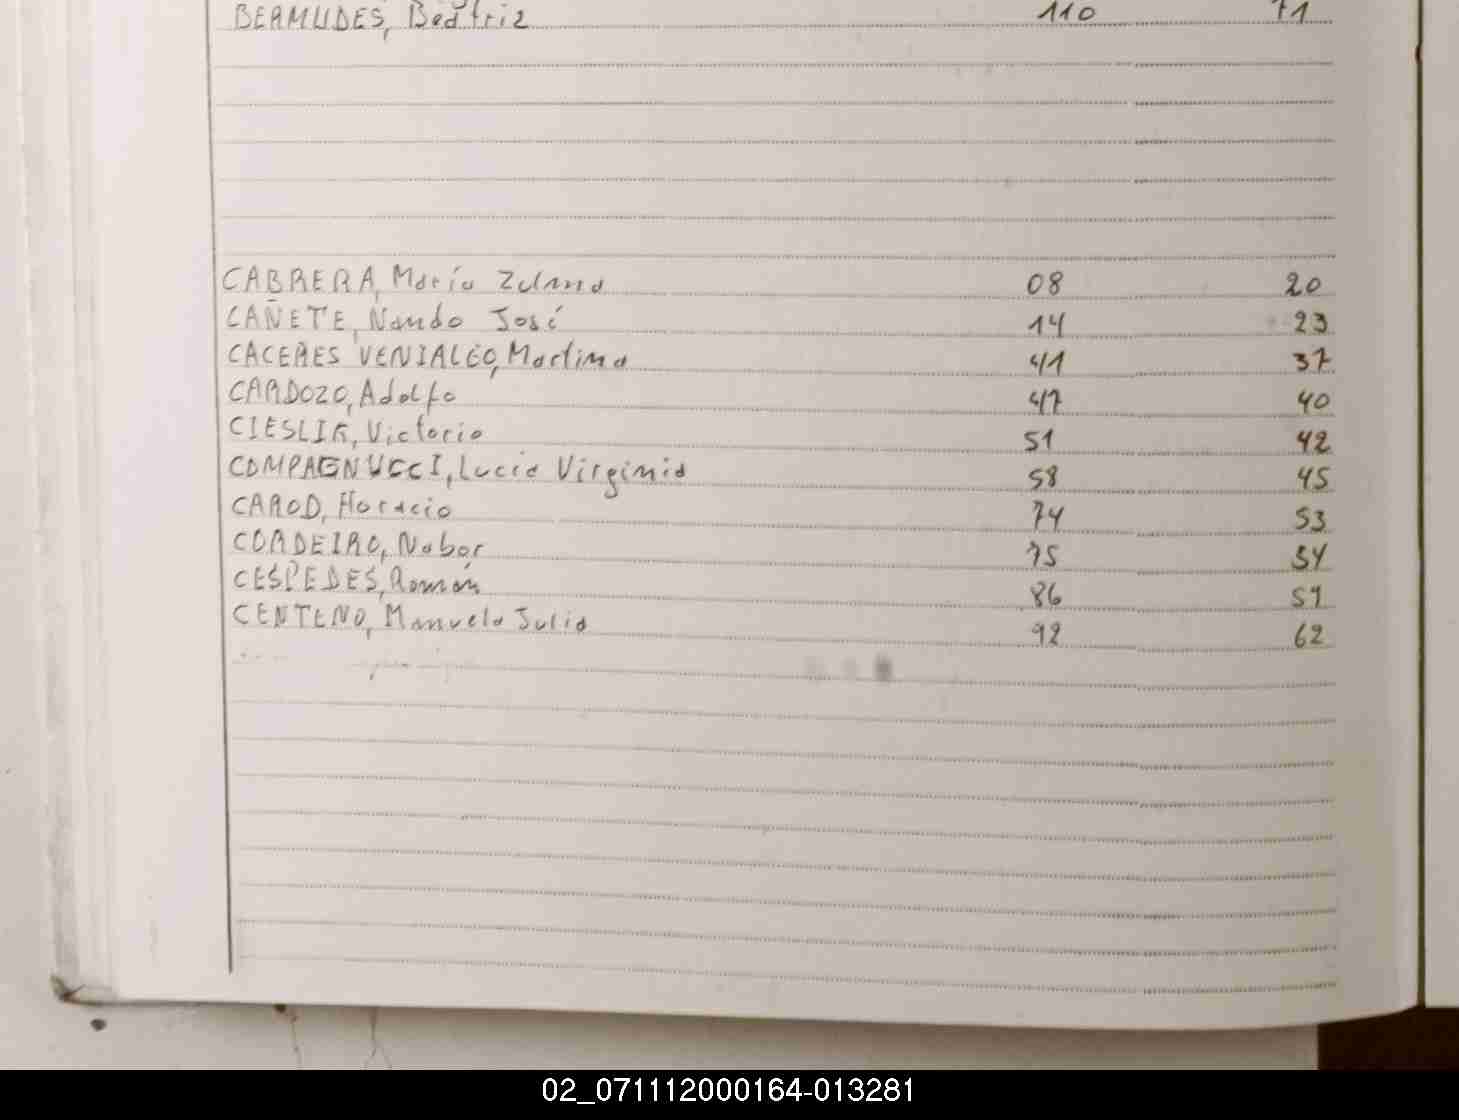 BERMUDES, Beatriz 110 71
CABRERA, María Zulma 08 20
CAÑETE, Nando José 14 23
CACERES VENIALGO, Martina 41 37
CARDOZO, Adolfo 47 40
CIESLIK, Victorio 51 42
COMPAGNUCCI, Lucia Virginia 58 45
CAROD, Horacio 74 53
CORDEIRO, Nabor 75 54
CESPEDES, Román 86 59
CENTENO, Manuela Julia 92 62
02_071112000164-013281